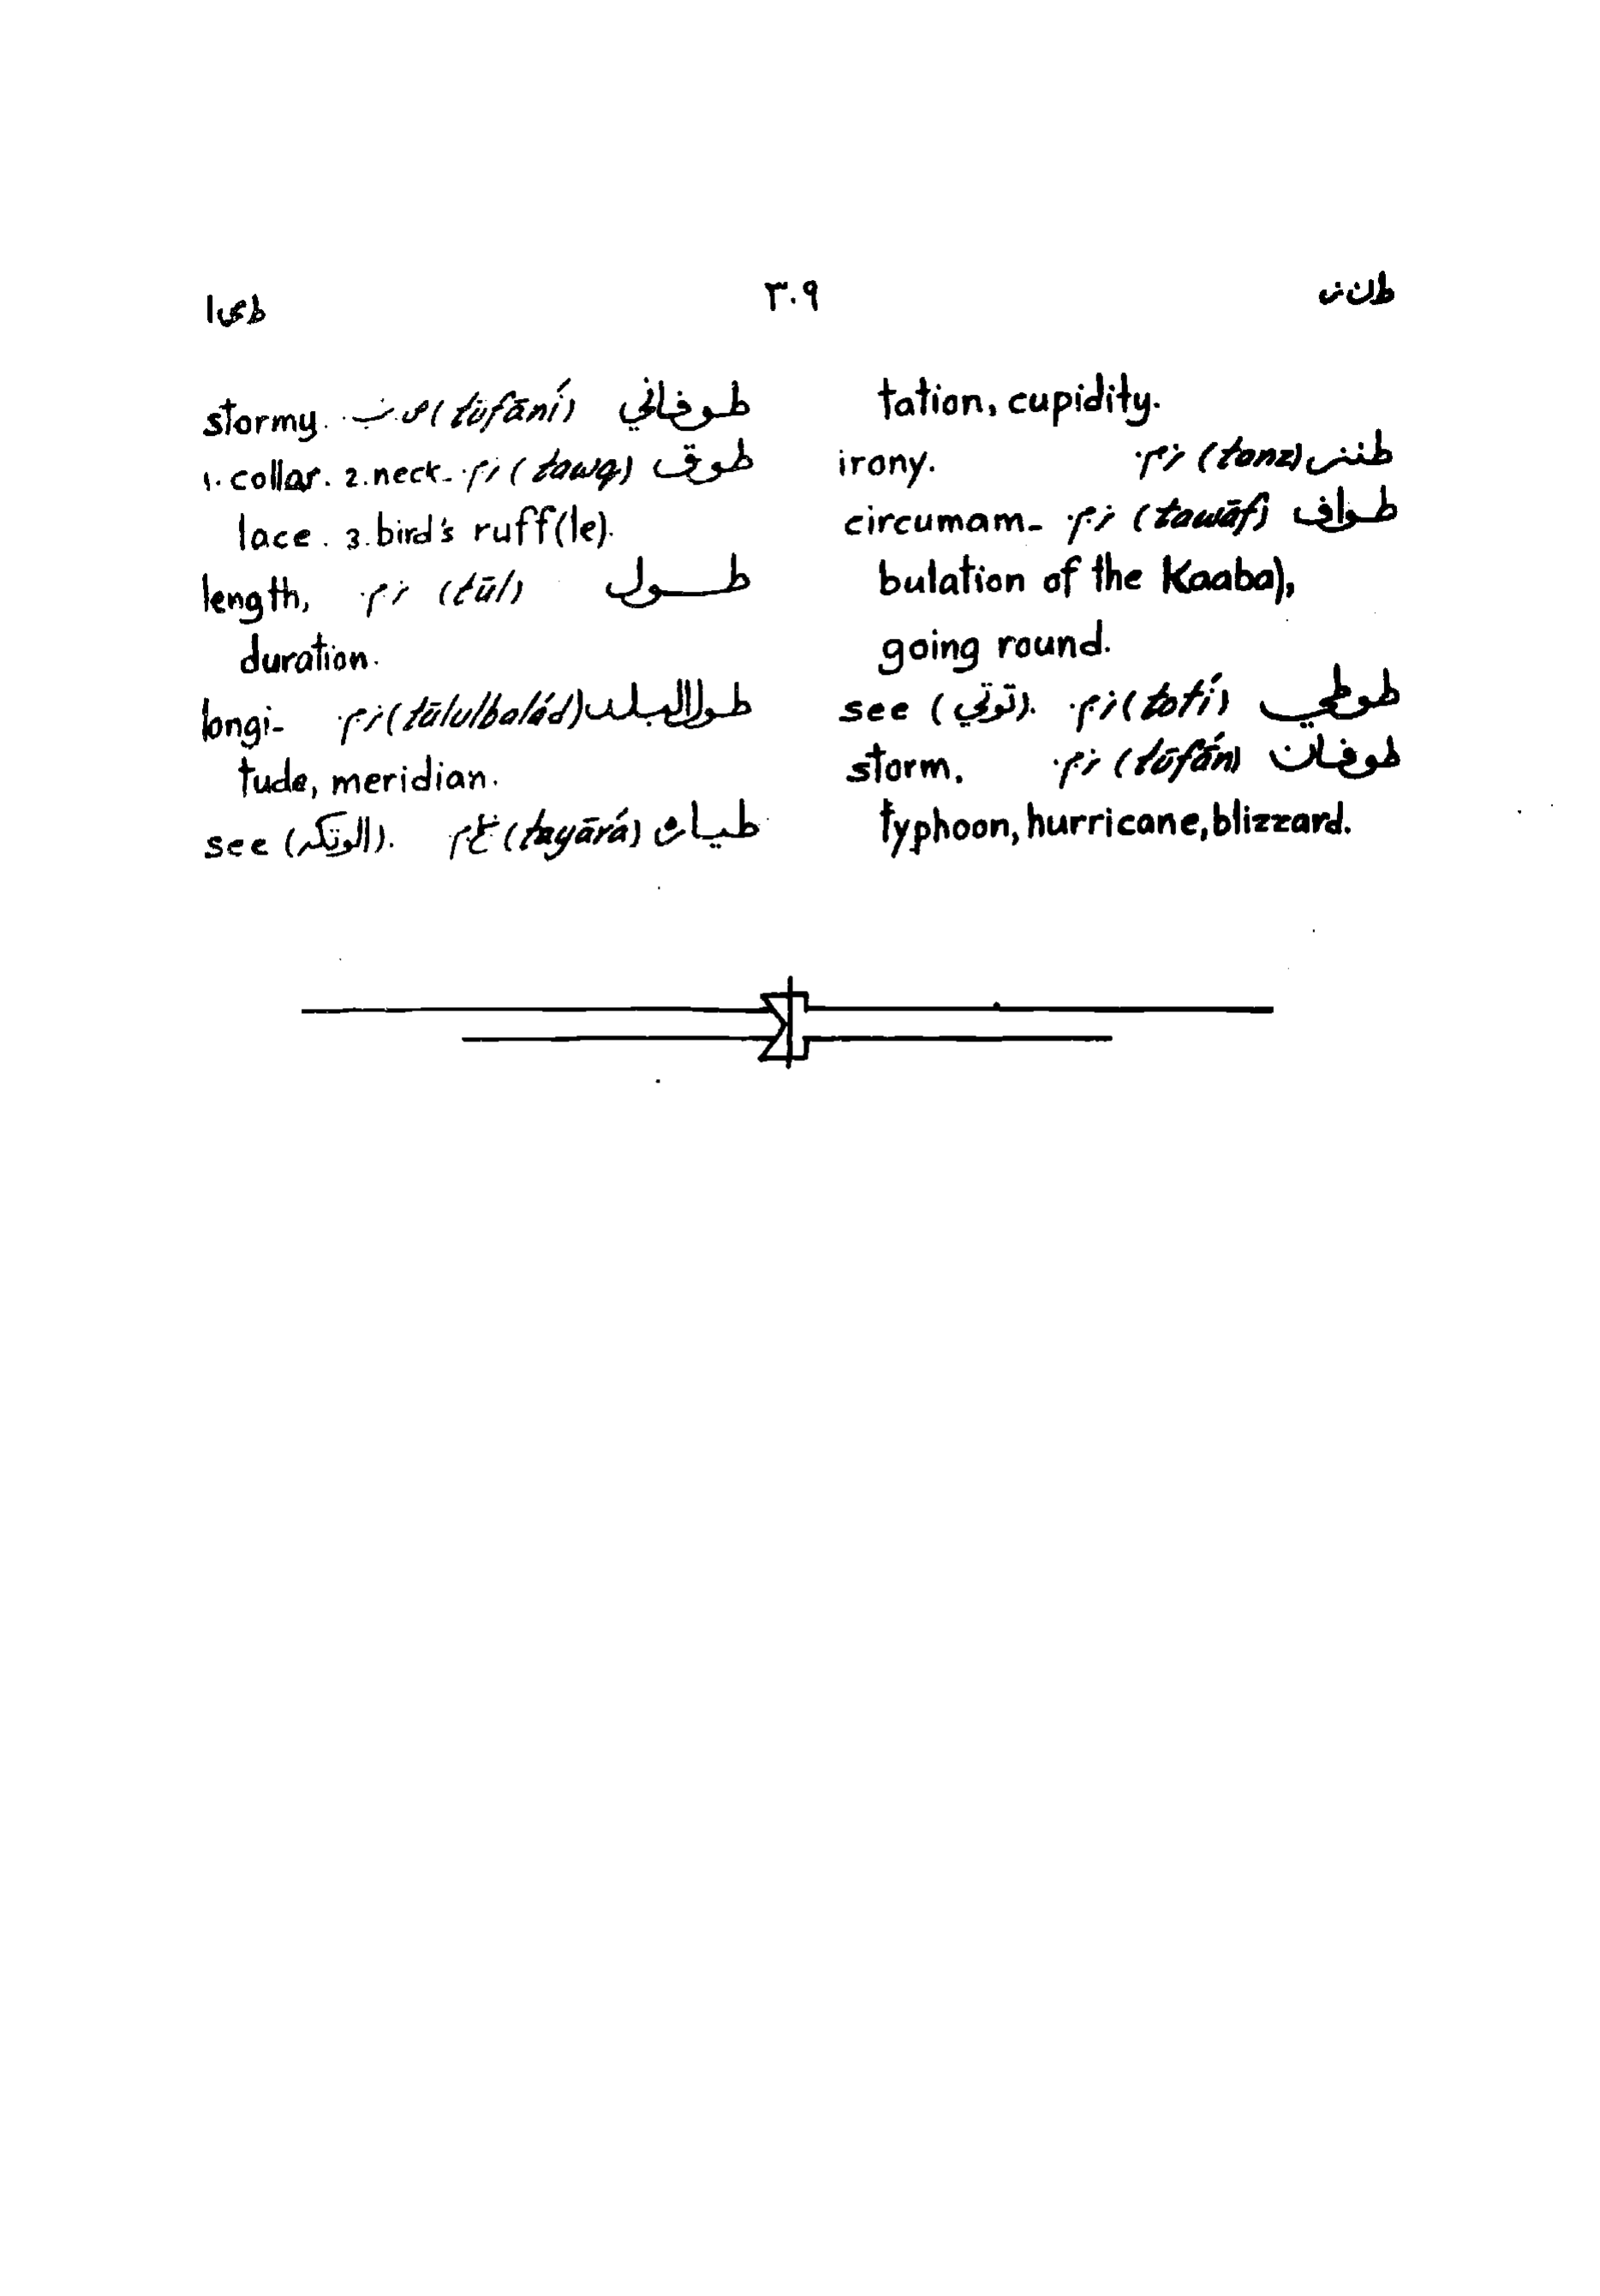 طی‌ا ۳۰۹ ط‌ن‌ز
tation, cupidity.
طنز (tanz) ن م. irony.
طواف (tawāf) ن م. circumam-
bulation of the Kaaba),
going round.
طوطي (totí) ن م. see (توتي).
طوفان (tōfán) ن م. storm,
typhoon, hurricane, blizzard.
طوفاني (tōfāní) stormy.
طوق (tawq) ن م. 1. collar. 2. neck-
lace. 3. bird's ruff(le).
طول (tūl) ن م. length,
duration.
طول البلد (tūlulbalád) ن م. longi-
tude, meridian.
(tayārá) see (الوتکه).